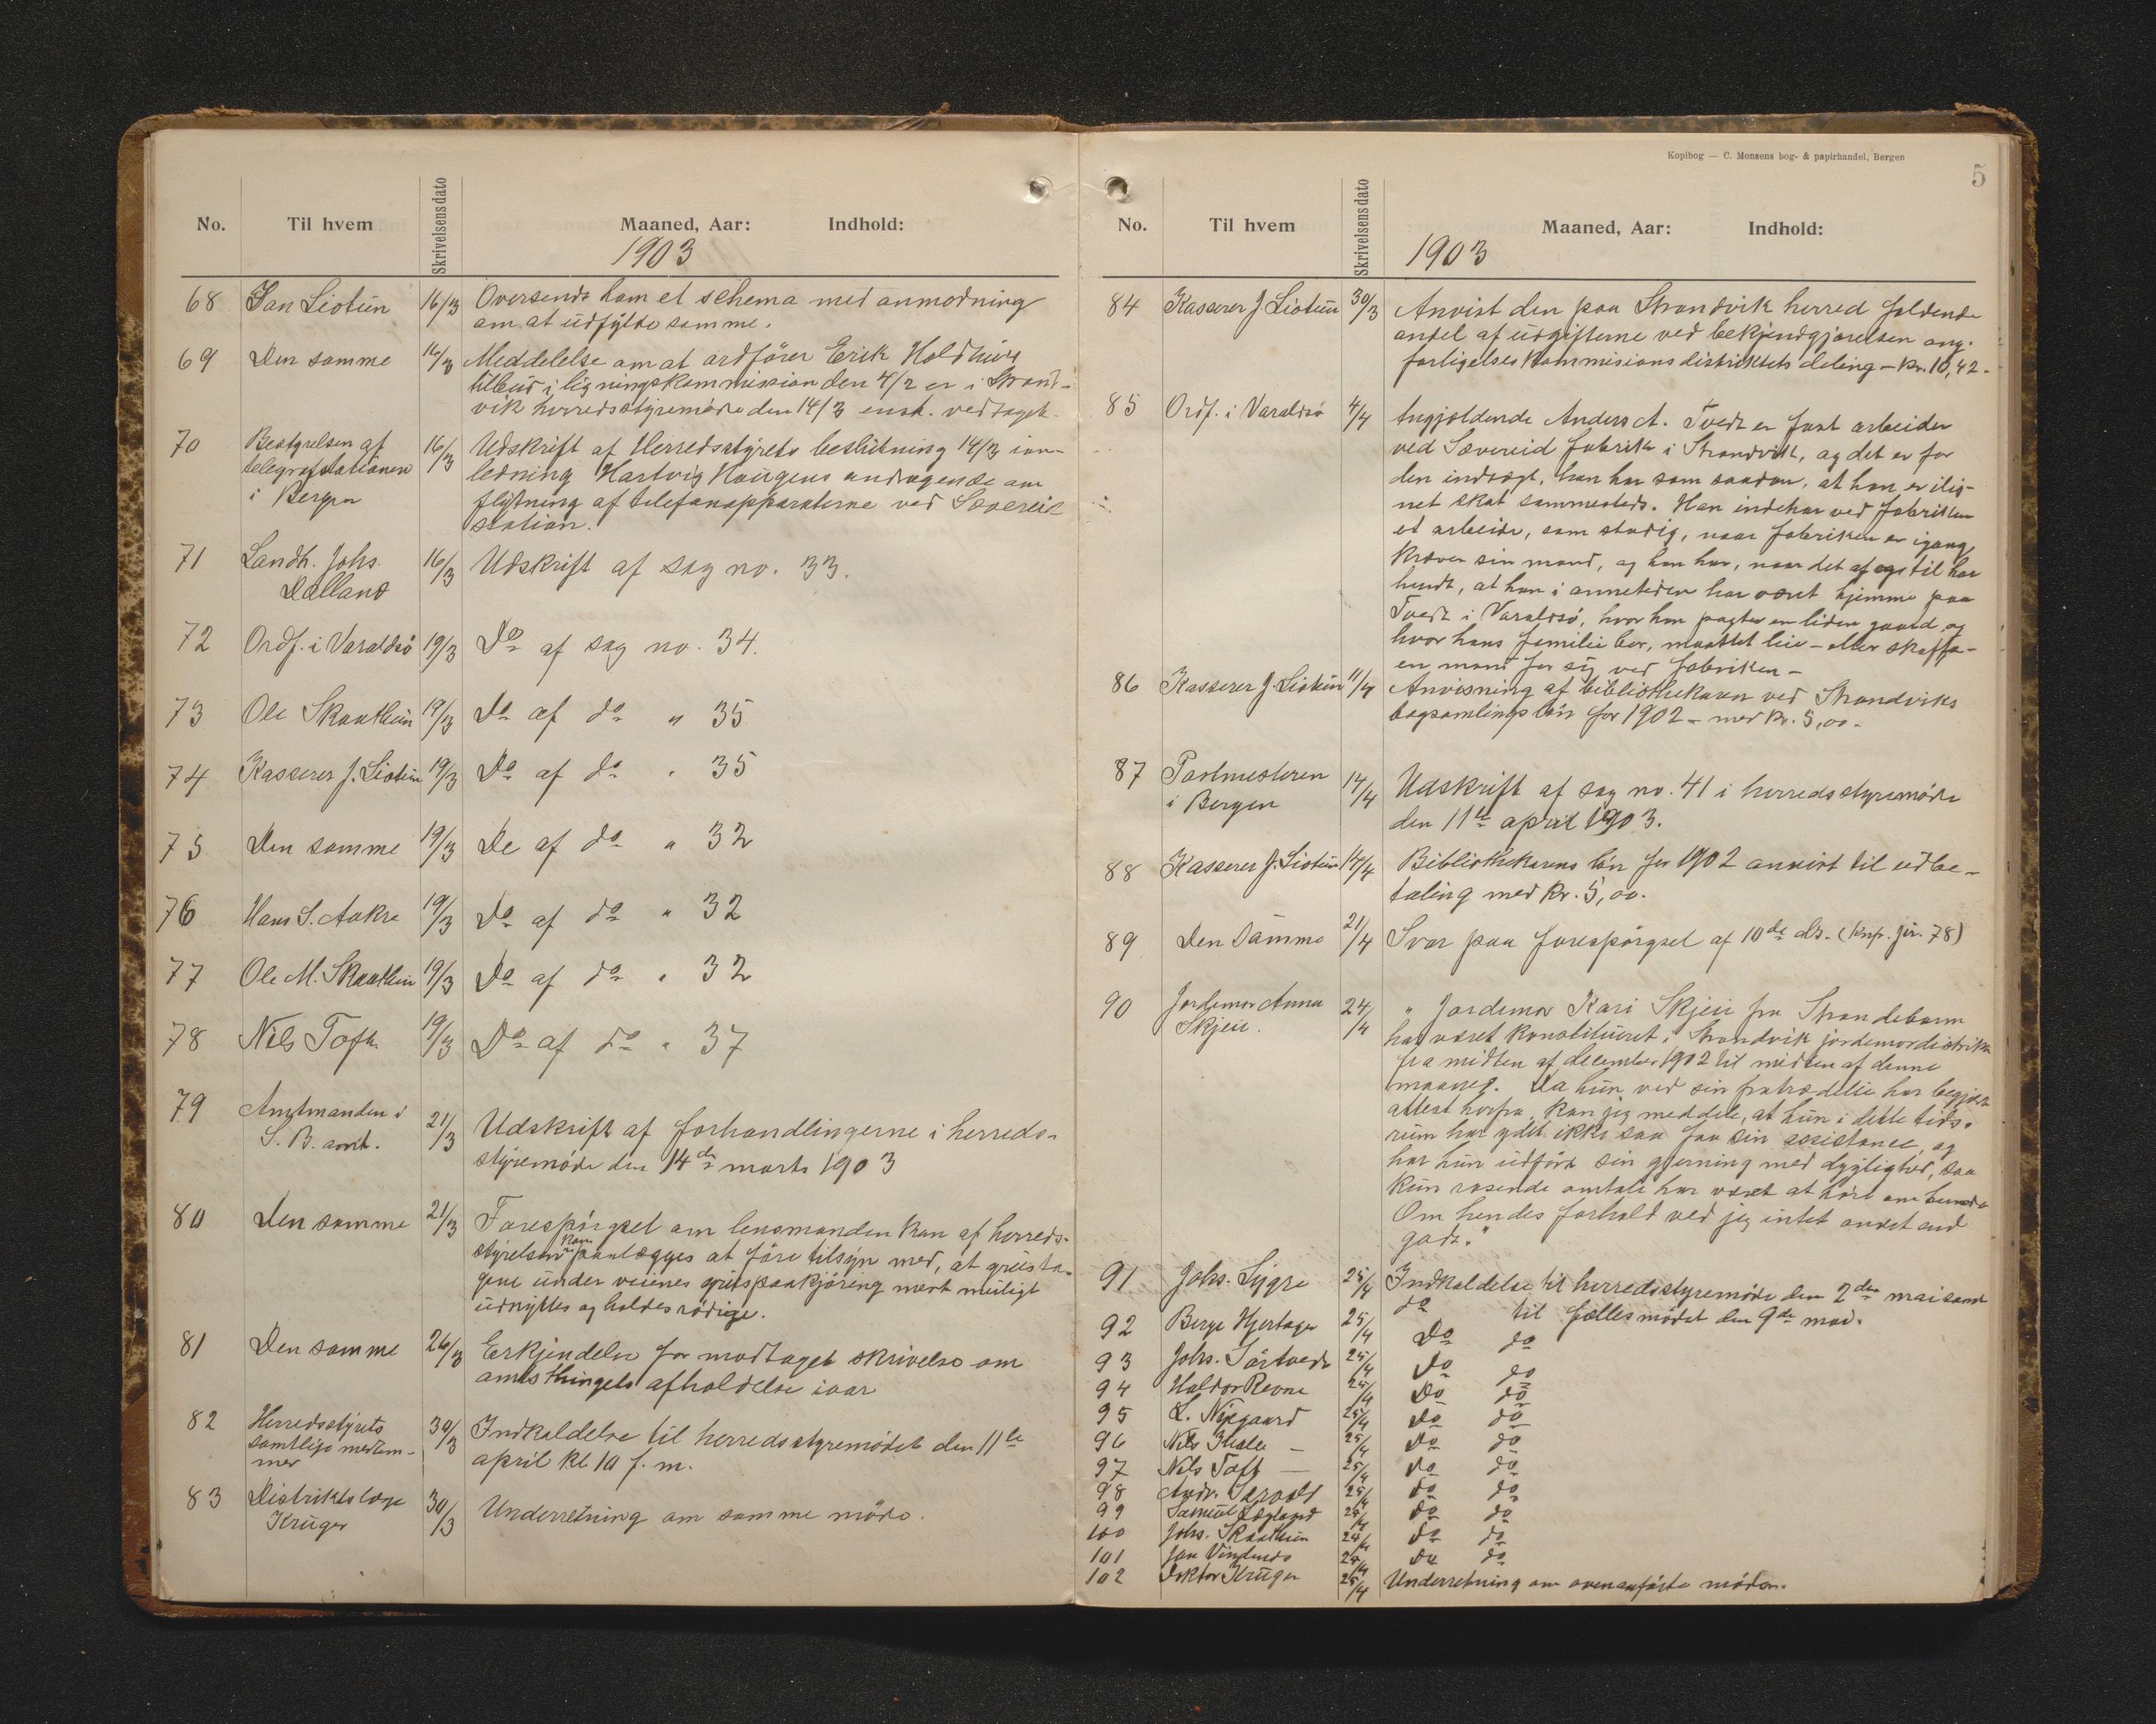 No. Til hvem Skrivelsensdato Maaned, Aar: Indhold:
1903
68 Jan Liotun 16/3 Oversendt ham et schema med anmodning
om at udfylde samme.
69 Den samme 16/3 Meddelelse om at ordfører Erik Holdhus
tilbud i ligningskommission den 4/2 er i Strand-
vik herredsstyremøde den 14/3 enst. vedtaget.
70 Bestyrelsen af 16/3 Udskrift af Herredsstyrets beslutning 14/3 ian-
telegrafstationen ledning Hartvig Haugens andragende om
i Bergen flytning af telefonapparaterne ved Sævereid
station.
71 Landh. Johs. 16/3 Udskrift af sag no. 33.
Dalland
72 Ordf. i Varaldsø 19/3 Do af sag no. 34.
73 Ole Skaathun 19/3 Do af do " 35
74 Kasserer J. Liotun 19/3 Do af do " 35
75 Den samme 19/3 Do af do " 32
76 Hans S. Aakre 19/3 Do af do " 32
77 Ole M. Skaathun 19/3 Do af do " 32
78 Nils Toft 19/3 Do af do " 37
79 Amtmanden i 21/3 Udskrift af forhandlingerne i herreds-
S. B. amt. styremøde den 14de marts 1903
80 Den samme 21/3 Forespørgsel om lensmanden kan af herreds-
styrelsen kan paalægges at føre tilsyn med, at grusta-
gene under veienes gruspaakjøring mest muligt
udnyttes og holdes rødige.
81 Den samme 26/3 Erkjendelse for modtaget skrivelse om
amtsthingets afholdelse iaar
82 Herredsstyrets 30/3 Indkaldelse til herredsstyremødet den 11te
samtlige medlem- april kl 10 f. m.
mer
83 Distriktslæge 30/3 Underretning om samme møde.
Krüger
Kopibog — C. Monsens bog- & papirhandel, Bergen
5
No. Til hvem Skrivelsensdato Maaned, Aar: Indhold:
1903
84 Kasserer J Liotun 30/3 Anvist den paa Strandvik herred faldende
andel af udgifterne ved bekjendgjørelsen ang.
forligelseskommisionsdistriktets deling – kr. 10,42 –
85 Ordf. i Varaldsø 4/4 Angjældende Anders A. Tvedt er fast arbeider
ved Sævereid fabrik i Strandvik, og det er for
den indtægt, han har som saadan, at han er ilig-
net skat sammesteds. Han indehar ved fabriken
et arbeide, som stadig, naar fabriken er igang,
kræver sin mand, og han har, naar det af og til har
hendt, at han i annetiden har været hjemme paa
Tvedt i Varaldsø, hvor han pagter en liden gaard og
hvor hans familie bor, maattet leie – eller skaffe –
en mand for sig ved fabriken –
86 Kasserer J. Liotun 11/4 Anvisning af bibliothekaren ved Strandviks
bogsamlings løn for 1902 – med kr. 5,00 –
87 Postmesteren 14/4 Udskrift af sag no. 41 i herredsstyremøde
i Bergen den 11te april 1903.
88 Kasserer J. Liotun 14/4 Bibliothekarens løn for 1902 anvist til udbe-
taling med kr. 5,00.
89 Den samme 21/4 Svar paa forespørgsel af 10de ds.
90 Jordemor Anna 24/4 " Jordemor Kari Skjeie fra Strandebarm
Skjeie. har været konstitueret i Strandvik jordemordistrikt
fra midten af december 1902 til midten af denne
maaned. Da hun ved sin fratrædelse har begjært
attest herfra, kan jeg meddele, at hun i dette tids-
rum har ydet ikke saa faa sin assistance, og
har hun udført sin gjerning med dygtighed, saa
kun rosende omtale har været at høre om hende.
Om hendes forhold ved jeg intet andet end
godt."
91 Johs. Lygre 25/4 Indkaldelse til herredsstyremøde den 2den mai samt
do til fællesmødet den 9de mai.
92 Berge Hjertager 25/4 Do do
93 Johs. Sørtvedt 25/4 Do do
94 Haldor Revne 25/4 Do do
95 L. Nygaard 25/4 Do do
96 Nils 25/4 Do do
97 Nils Toft — 25/4 Do do
98 Andr. 25/4 Do do
99 Samuel 25/4 Do do
100 Johs. Skaathun 25/4 Do do
101 Jon Vindenes 25/4 Do do
102 Doktor Krüger 25/4 Underretning om ovenanførte møder.